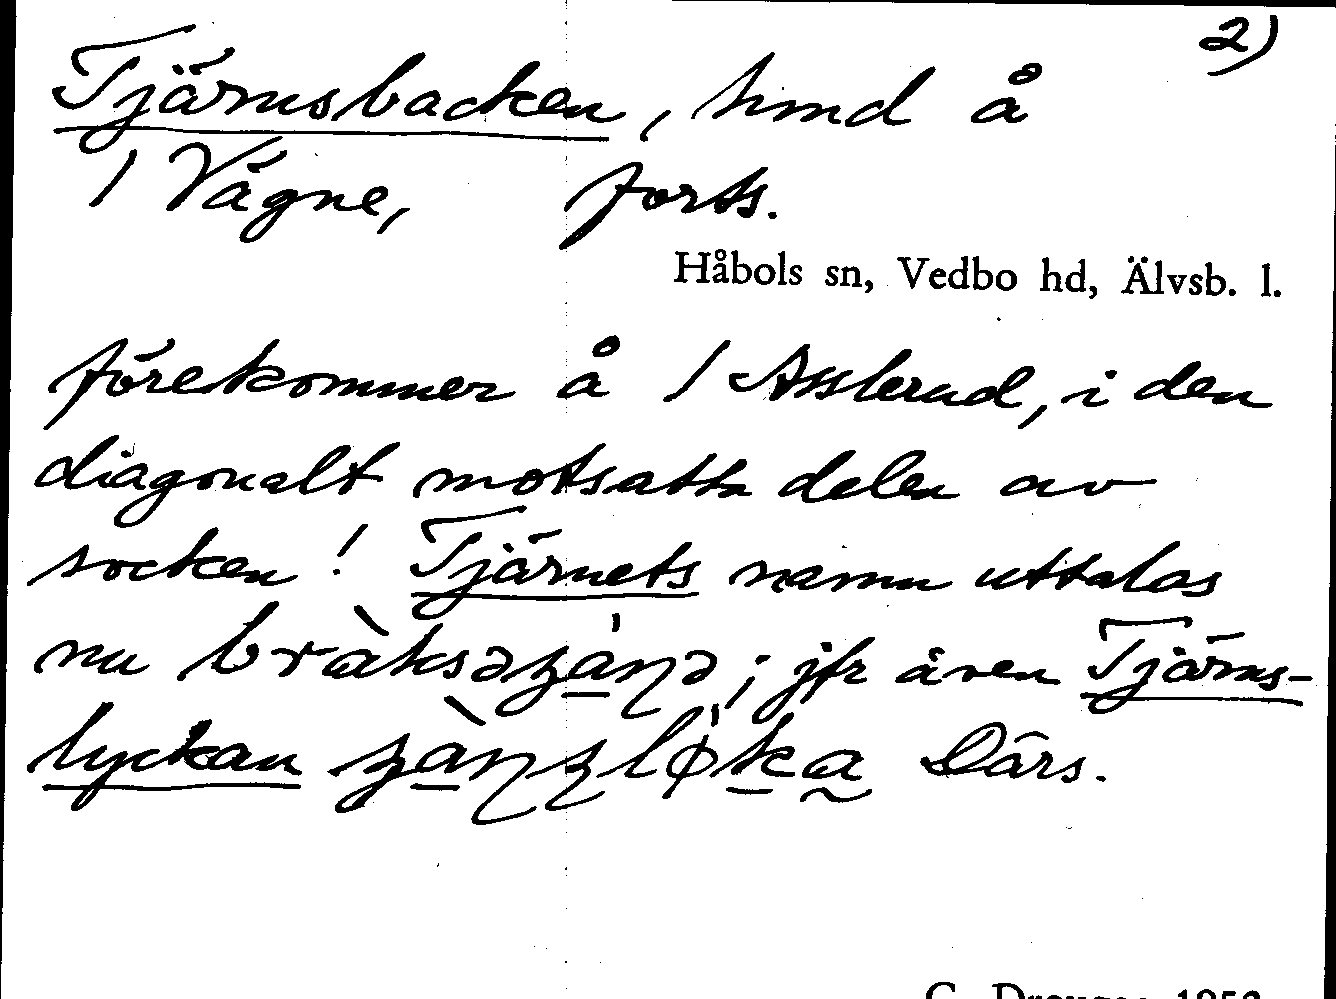 2)
Tjärnsbacken, hmd å
1 Vågne, forts.
Håbols sn, Vedbo hd, Älvsb. l.
förekommer å 1 Asslerud, i den
diagonalt motsatta delen av
socken! Tjärnets namn uttalas
nu bràksəʒa̠ɳə; jfr även Tjärns-
lyckan Därs.
C.